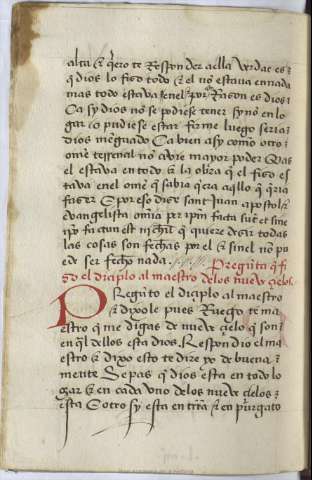 alta & q̃ero te Responder aella verdat es
q̃ dios lo fizo todo & el no estaua en nada
mas todo estaua en el por q̃ Razon es dios
Ca sy dios no se podiese tener syno en lo
gar o pudiese estar firme luego seria
dios menguado Ca bien asy como otro
ome terrenal no avrie mayor poder Mas
el estaua en todo & la obra q̃ el fizo es
taua en el ome q̃ sabia q̃ era aq̃llo q̃ q̃ria
fazer E por eso dize sant Juan apostol &
evangelista omia per ipm facta sut et sine
ipo factum est nichil que quiere dezir todas
las cosas son fechas por el & sin el no po
ede ser fecho nada. Pregunta q̃ fi
zo el diciplo al maestro delos nueve çielos
PRegunto el diciplo al maestro
& dixole pues Ruego te ma
estro q̃ me digas de nueve çielos q̃ son
en q̃l dellos esta dios. Respondio el ma
estro & dixo esto te dire yo de buena
mente Sepas q̃ dios esta en todo lo
gar & en cada vno delos nueve çielos
esta Otro sy esta en trr̃a & en purgato